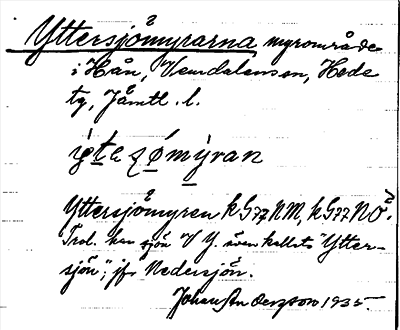 Yttersjömyrarna myrområde
i Hån, Vemdalens sn, Hede
tg, Jämtl. l.
Yttersjömyren k G77 NM, k G77 NÖ.
Trol. har sjön V Y. även kallats "Ytter-
sjön", jfr Nedersjön.
Johan Anderzson 1935.